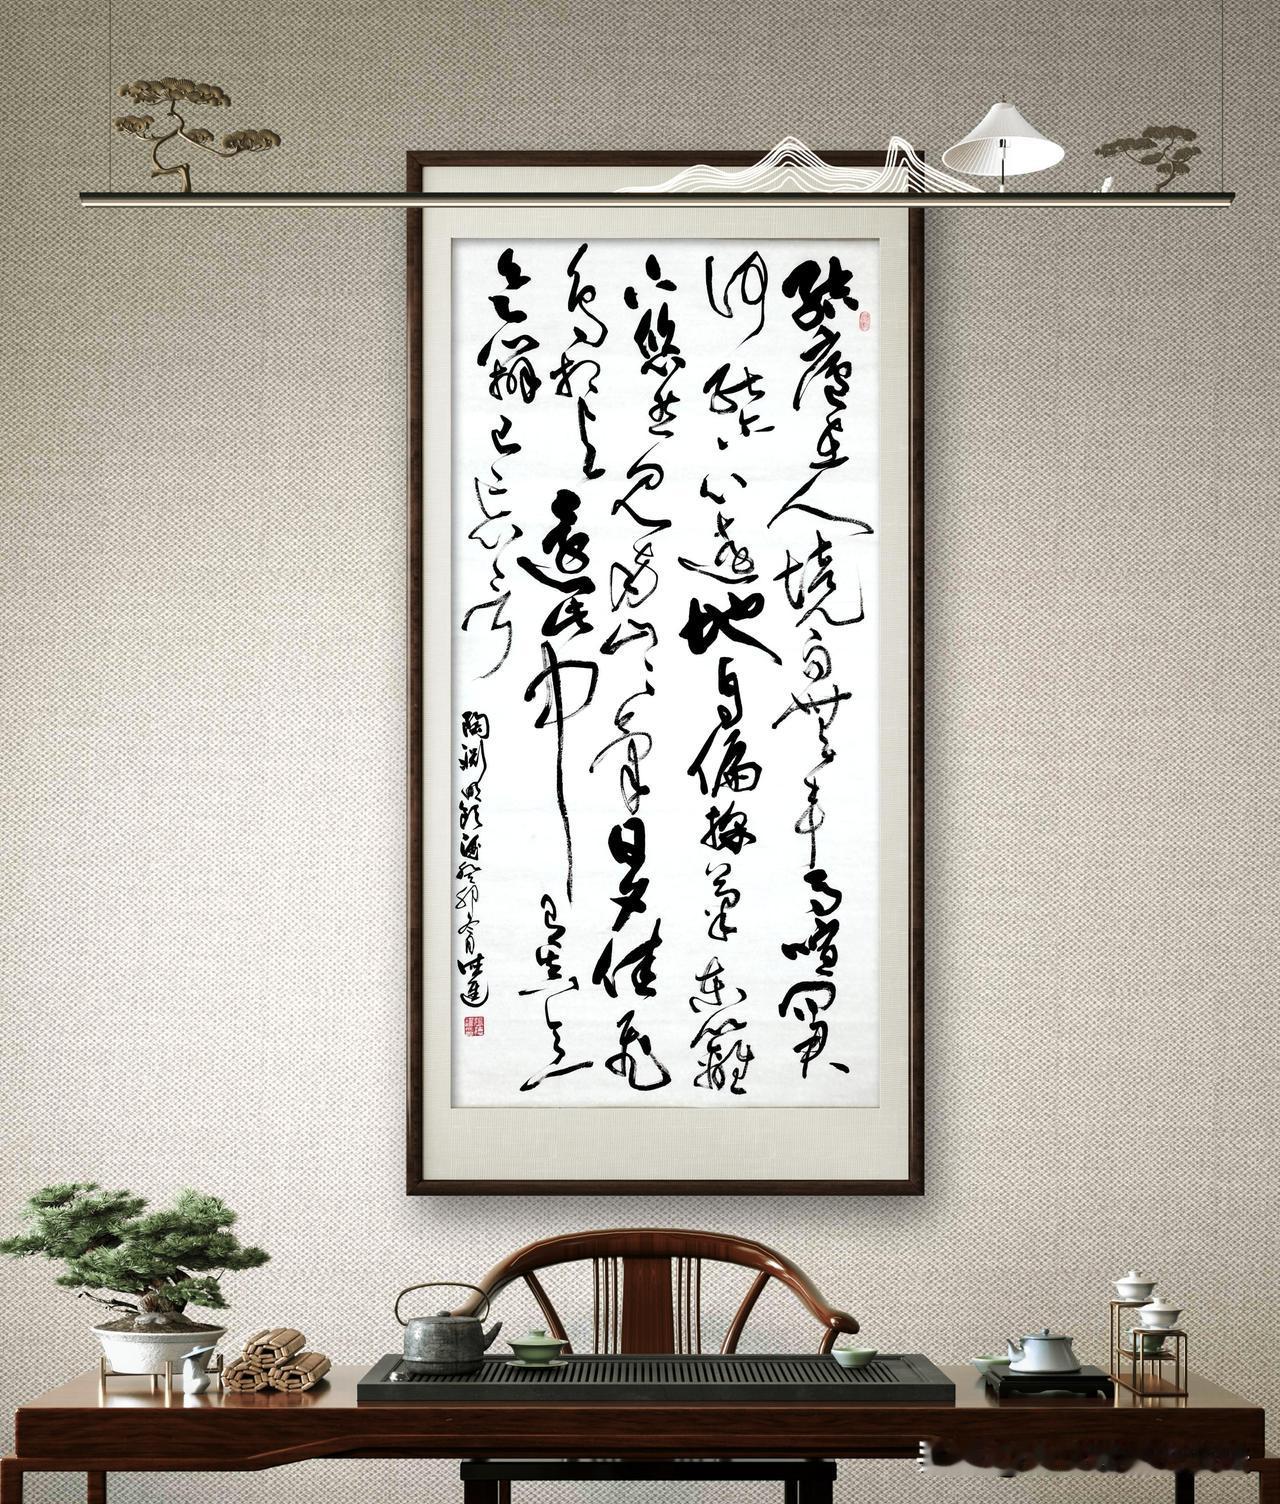 結廬在人境而無車馬喧問君
何能爾心遠地自偏採菊東籬
下悠然見南山山氣日夕佳飛
鳥相與還此中有真意
欲辨已忘言
陶淵明飲酒癸卯冬月